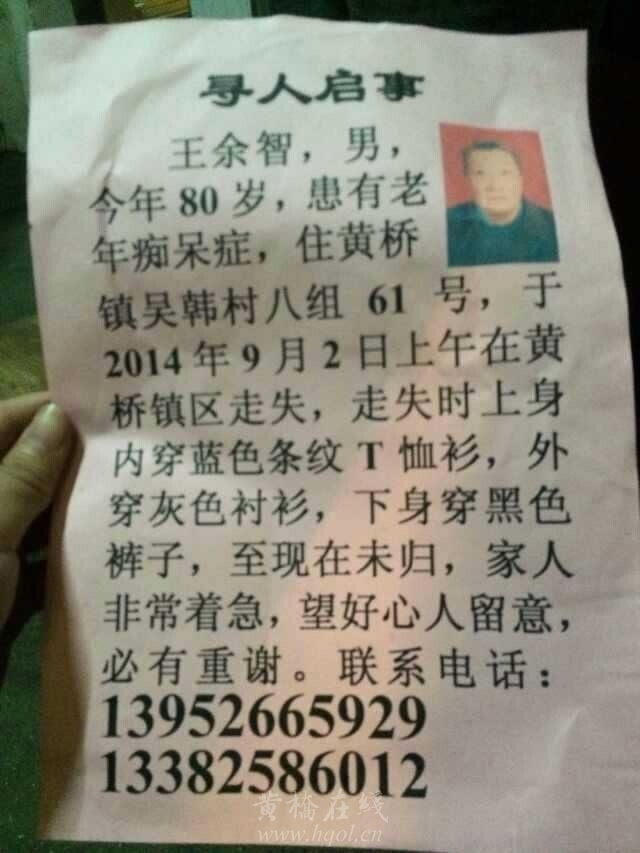 寻人启事
王余智，男，
今年 80 岁，患有老
年痴呆症，住黄桥
镇吴韩村八组 61 号，于
2014 年 9 月 2 日上午在黄
桥镇区走失，走失时上身
内穿蓝色条纹 T 恤衫，外
穿灰色衬衫，下身穿黑色
裤子，至现在未归，家人
非常着急，望好心人留意，
必有重谢。联系电话：
13952665929
13382586012
黄橋在线
www.hqol.cn